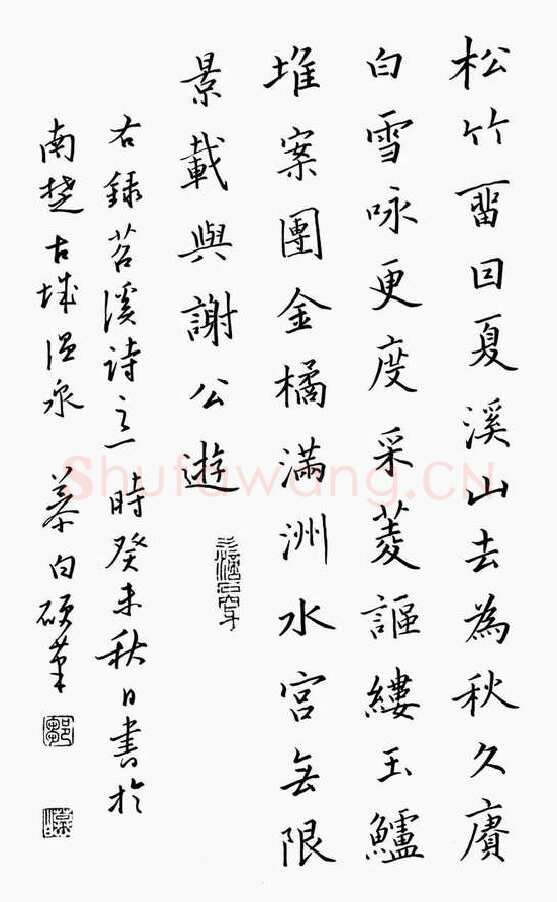 松竹畱囙夏溪山去為秋久賡
白雪咏更度采菱謳縷玉鱸
堆案團金橘滿洲水宮無限
景載與謝公遊
右録苕溪詩之一時癸未秋日書於
南楚古城温泉 慕白碩筆
Shufawang.CN